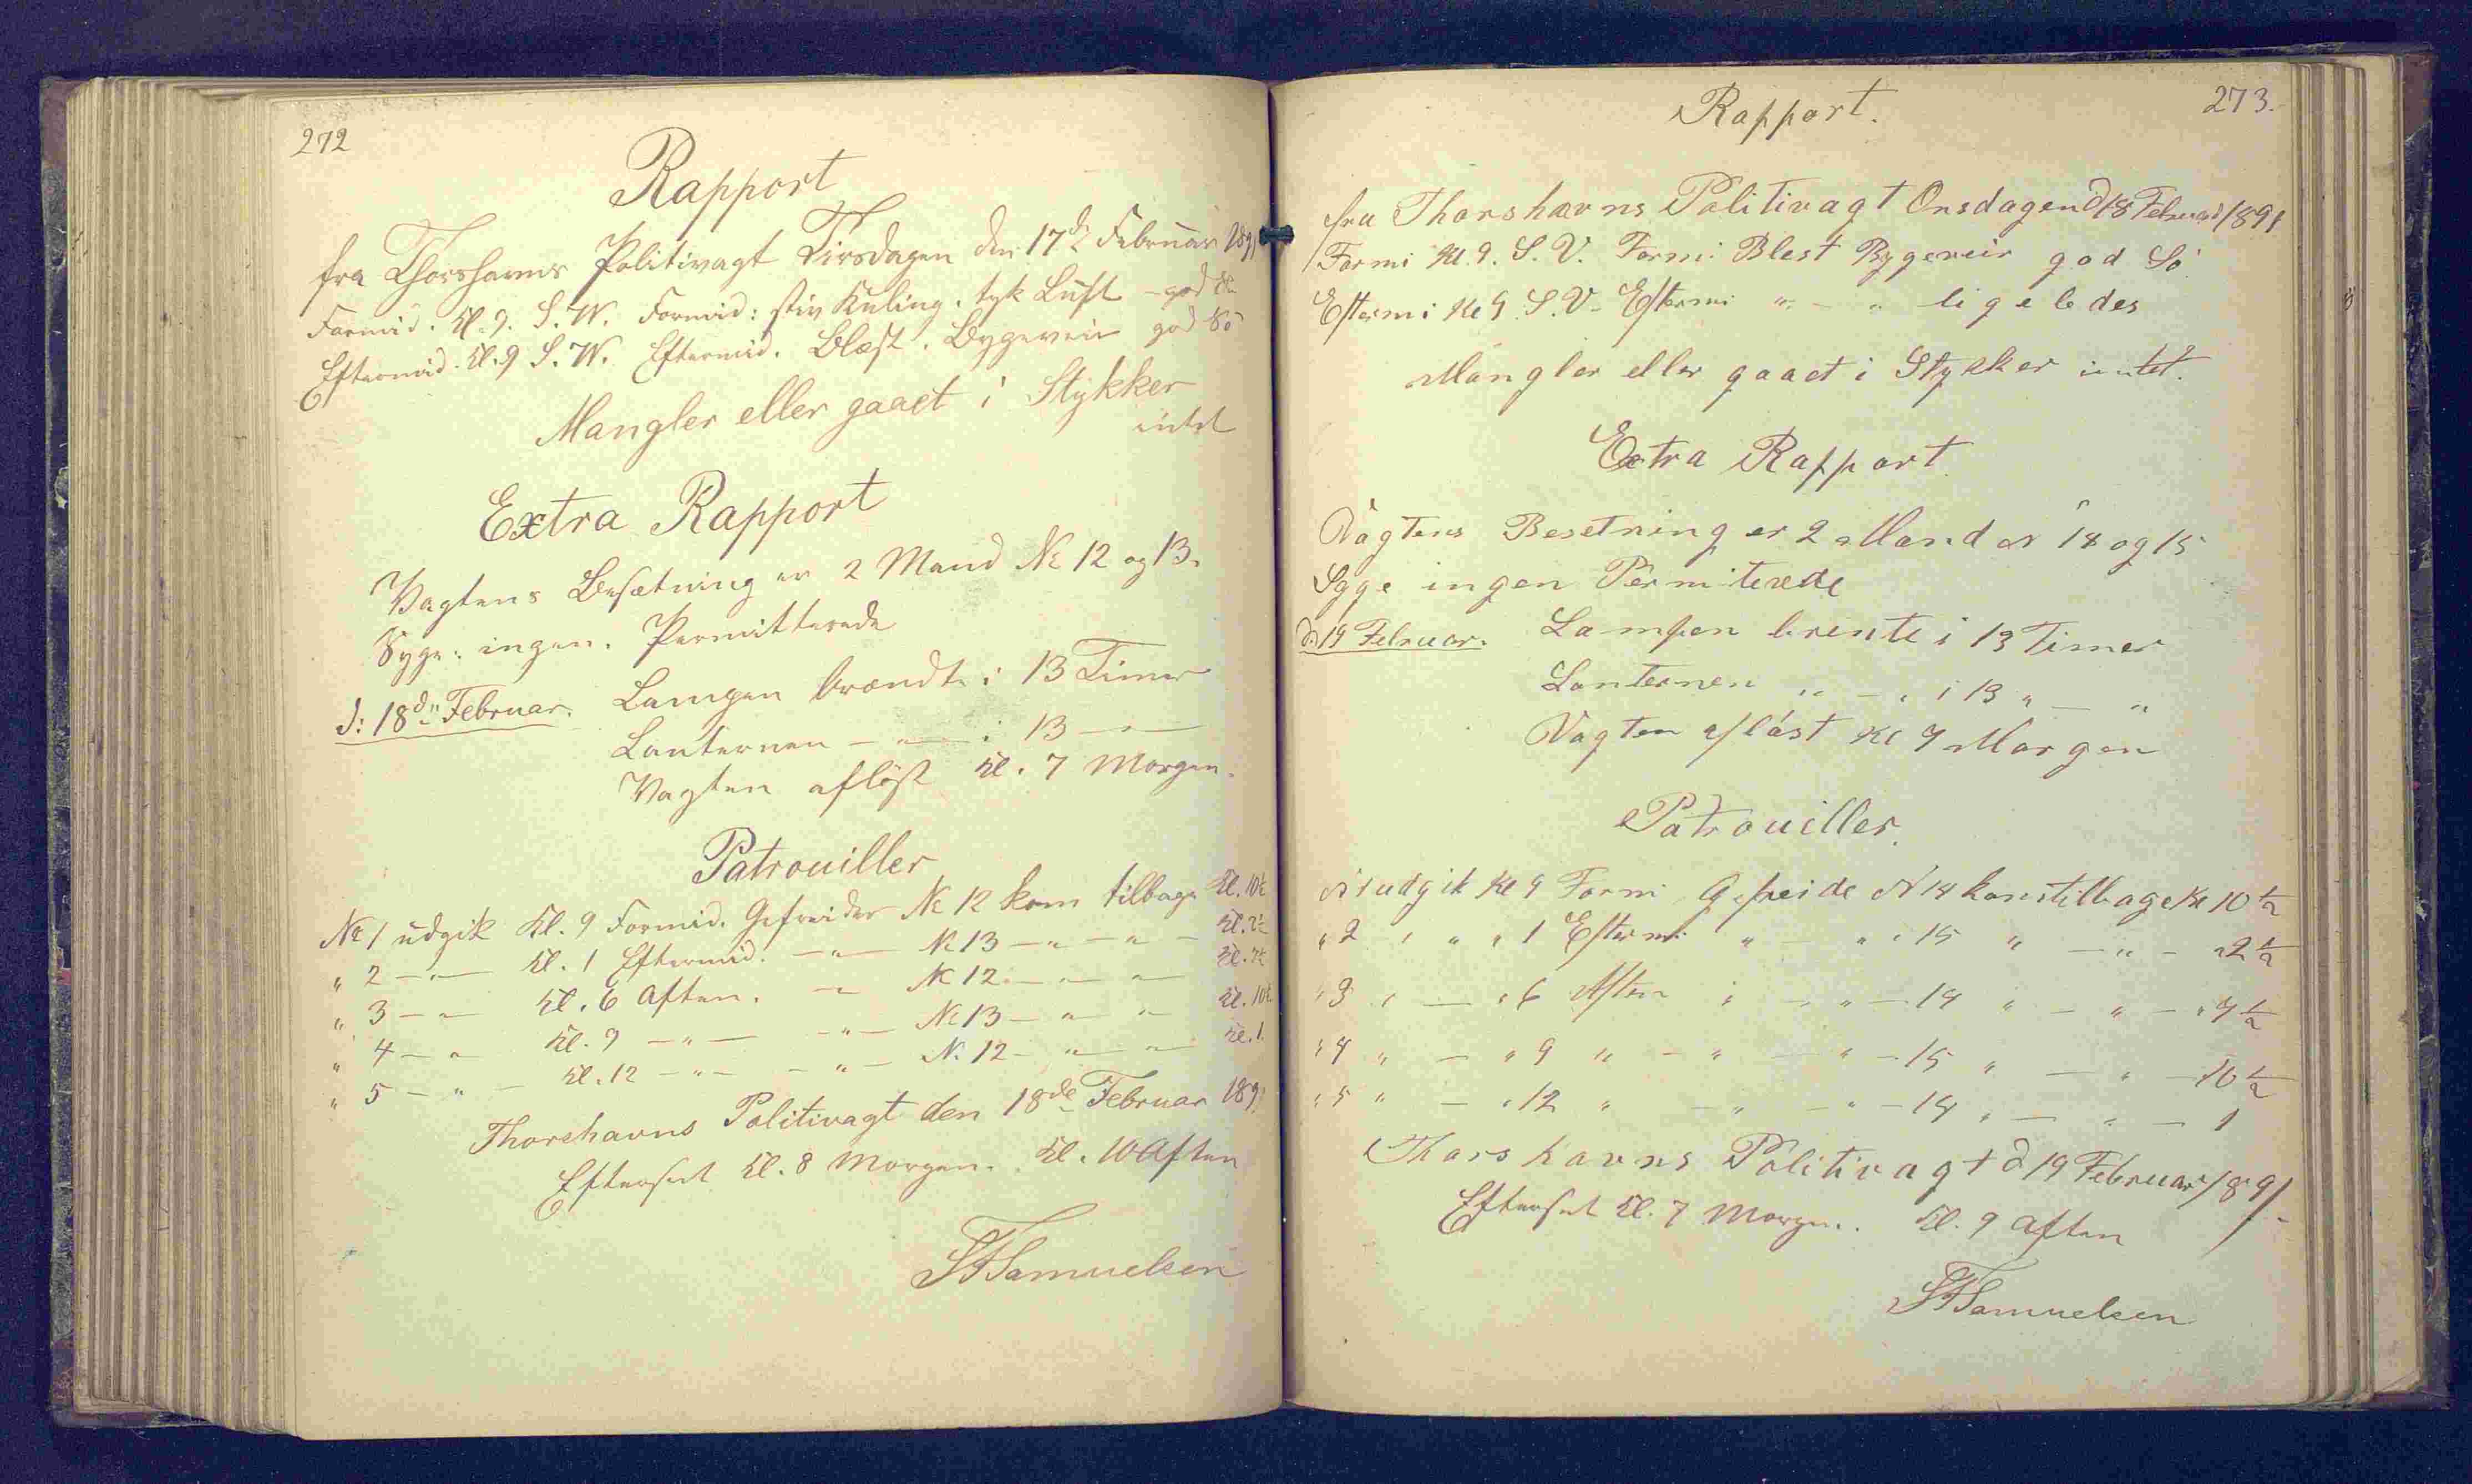 272
Rapport
fra Thorshavns Politivagt Tirsdagen den 17de Februar 1891
Formid. Kl. 9. S. W. Formid: stiv Kuling. tyk Luft - god Sö
Eftermid. Kl. 9 S. W. Eftermid. Blæst. Bygeveir god Sö
Mangler eller gaaet i Stykker
intet
Extra Rapport
Vagtens Besætning er 2 Mand No 12 og 13.
Syge: ingen. Permitterede
d: 18de Februar. Lampen brændte i 13 Timer
Lanternen — " — i 13 — " —
Vagten aflöst Kl. 7 Morgen.
Patrouiller
No 1 udgik Kl. 9 Formid. Gefreider No 12 kom tilbage Kl. 10½
" 2 — " — Kl. 1 Eftermid. — " — No 13 — " — " — Kl. 2½
" 3 — " — Kl. 6 Aften. — " No 12 — " — " — Kl. 7½
" 4 — " Kl. 9 — " — — " — No 13 — " — " Kl. 10½
" 5 — " — Kl. 12 — " — — " — No 12 — " — " — Kl. 1
Thorshavns Politivagt den 18de Februar 1891
Efterset Kl. 8 Morgen. Kl. 10 Aften
Samuelsen
273.
Rapport.
fra Thorshavns Politivagt Onsdagen d 18 Februar 1891
Formi Kl. 9. S. V. Formi Blest Bygeveir god Sö
Eftermi Kl 9 S. V. Eftermi " — " ligeledes
Mangler eller gaaet i Stykker intet.
Extra Rapport
Vagtens Besetning er 2 Mand N 14 og 15
Syge ingen Permiterede
d. 19 Februar. Lampen brente i 13 Timer
Lanternen " — " i 13 " — "
Vagten aflöst Kl 7 Morgen
Patrouiller.
N 1 udgik Kl 9 Formi Gefreide N 14 kom tilbage Kl 10 ½
" 2 " " " 1 Eftermi " — " " 15 " — " — " 2 ½
" 3 " — " 6 Aften " — " — 14 " — " — " 7 ½
" 4 " — " 9 " — " — " — 15 " — " — 10 ½
" 5 " — " 12 " — " — " — 14 " — " — 1
Thorshavns Politivagt d 19 Februar 1891
Efterset Kl. 7 Morgen. Kl. 9 Aften
Samuelsen